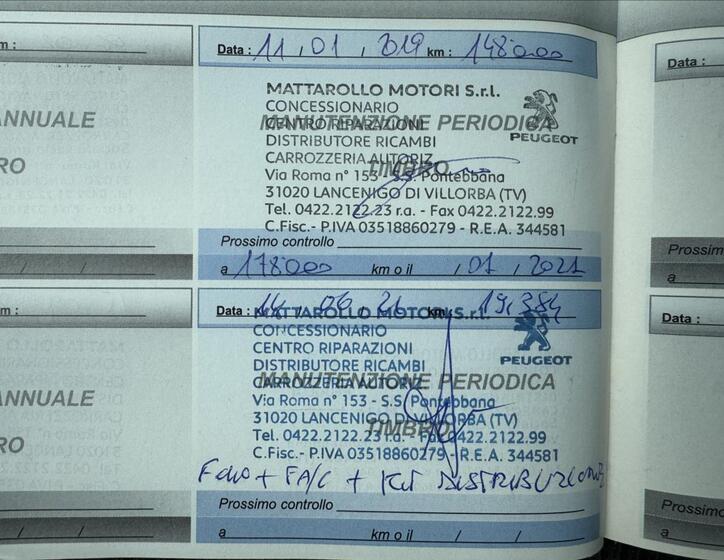 m :
ANNUALE
RO
Data : 11 , 01 , 2019 km : 148000
MATTAROLLO MOTORI S.r.l.
CONCESSIONARIO
CENTRO RIPARAZIONI
MANUTENZIONE PERIODICA
PEUGEOT
DISTRIBUTORE RICAMBI
CARROZZERIA AUTORIZ.
TIMBRO
Via Roma n° 153 - S.S. Pontebbana
31020 LANCENIGO DI VILLORBA (TV)
Tel. 0422.2122.23 r.a. - Fax 0422.2122.99
C.Fisc.- P.IVA 03518860279 - R.E.A. 344581
Prossimo controllo
a 178000 km o il / 01 / 2021
Data :
Prossim
a
m :
ANNUALE
RO
Data : 14 06 21 km :
MATTAROLLO MOTORI S.r.l.
CONCESSIONARIO
CENTRO RIPARAZIONI
PEUGEOT
DISTRIBUTORE RICAMBI
MANUTENZIONE PERIODICA
CARROZZERIA AUTORIZ.
Via Roma n° 153 - S.S. Pontebbana
31020 LANCENIGO DI VILLORBA (TV)
TIMBRO
Tel. 0422.2122.23 r.a. - Fax 0422.2122.99
C.Fisc.- P.IVA 03518860279 - R.E.A. 344581
+ FA/C + KIT DISTRIBUZIONE
Prossimo controllo
a km o il / /
Data :
Prossimo
a